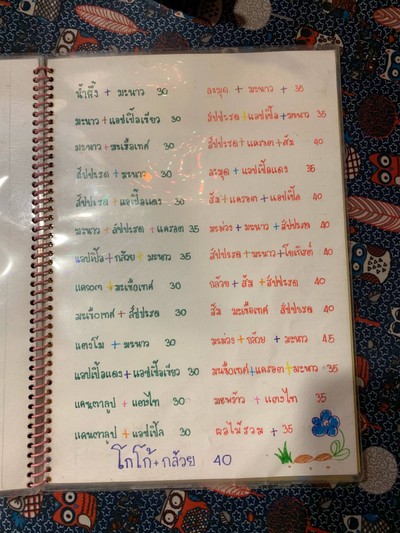 น้ำผึ้ง + มะนาว 30
มะนาว + แอปเปิ้ลเขียว 30
มะนาว + มะเขือเทศ 30
สัปปะรด + มะนาว 30
สัปปะรด + แอปเปิ้ลแดง 30
มะนาว + สัปปะรด + แครอท 35
แอปเปิ้ล + กล้วย + มะนาว 35
แครอท + มะเขือเทศ 30
มะเขือเทศ + สัปปะรด 30
แตงโม + มะนาว 30
แอปเปิ้ลแดง + แอปเปิ้ลเขียว 30
แคนตาลูป + แตงไท 30
แคนตาลูป + แอปเปิ้ล 30
ละมุด + มะนาว + 35
สัปปะรด + แอปเปิ้ล + มะนาว 35
สัปปะรด + แครอท + ส้ม 40
ละมุด + แอปเปิ้ลแดง 35
ส้ม + แครอท + แอปเปิ้ล 40
มะม่วง + มะนาว + สัปปะรด 40
สัปปะรด + มะนาว + โยเกิรต์ 40
กล้วย + ส้ม + สัปปะรด 40
ส้ม มะเขือเทศ สัปปะรด 40
มะม่วง + กล้วย + มะนาว 45
มะเขือเทศ + แครอท + มะนาว 35
มะพร้าว + แตงไท 35
ผลไม้รวม + 35
โกโก้ + กล้วย 40